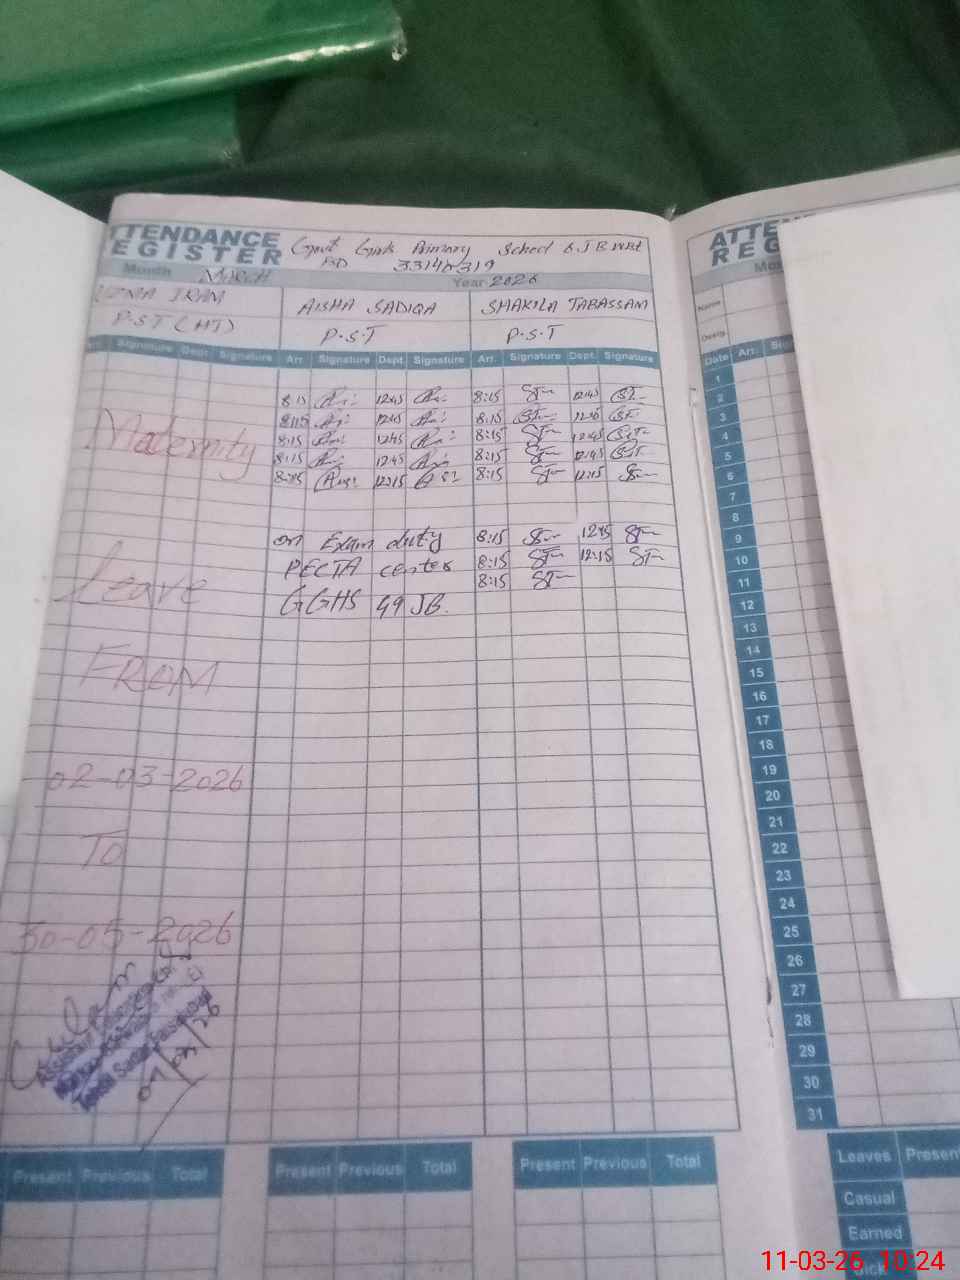 ATTENDANCE REGISTER
Govt Girls Primary School 6 JB
33140319
Month March Year 2026
IRAM AISHA SADIQA SHAKILA TABASSAM
P.S.T (HT) P.S.T P.S.T
Arr. Signature Dept. Signature Arr. Signature Dept. Signature Arr. Signature Dept. Signature
8:15 12:45 8:15 12:45
8:15 12:45 8:15
8:15 12:45 8:15 12:45
8:15 12:45 8:15 12:45
8:15 12:15 8:15 12:15
Maternity
Leave
FROM
02-03-2026
To
30-05-2026
on Exam duty 8:15 12:45
PECTA center 8:15 12:15
8:15
GGHS 49 JB.
Present Previous Total Present Previous Total Present Previous Total
Date Arr.
1
2
3
4
5
6
7
8
9
10
11
12
13
14
15
16
17
18
19
20
21
22
23
24
25
26
27
28
29
30
31
Leaves Present
Casual
Earned
Sick
11-03-26 10:24